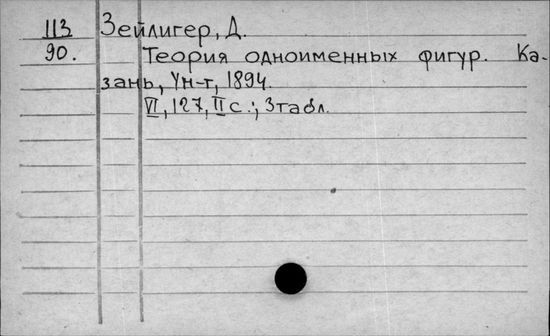 113 Зейлигер, Д.
90. Теория одноименных фигур. Ка-
зань, Ун-т, 1894.
VI, 127, II с.; 3 табл.